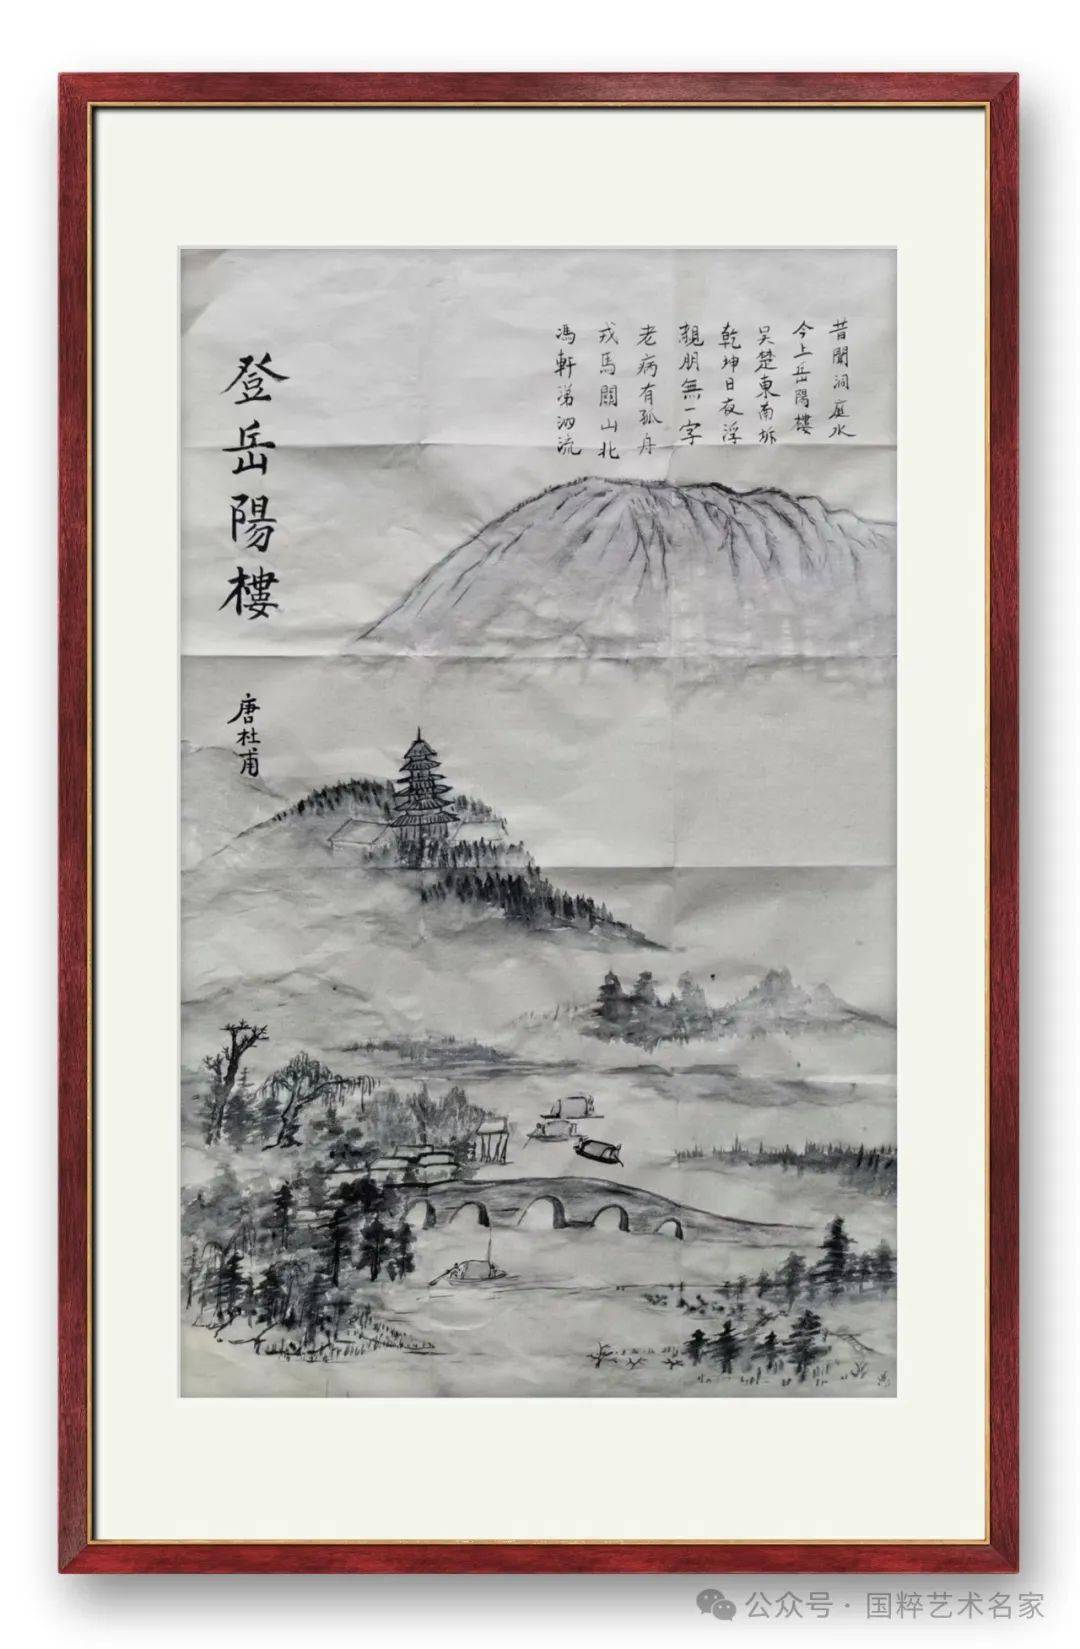 昔聞洞庭水
今上岳陽樓
吴楚東南坼
乾坤日夜浮
親朋無一字
老病有孤舟
戎馬關山北
馮軒涕泗流
登岳陽樓
唐杜甫
公众号·国粹艺术名家